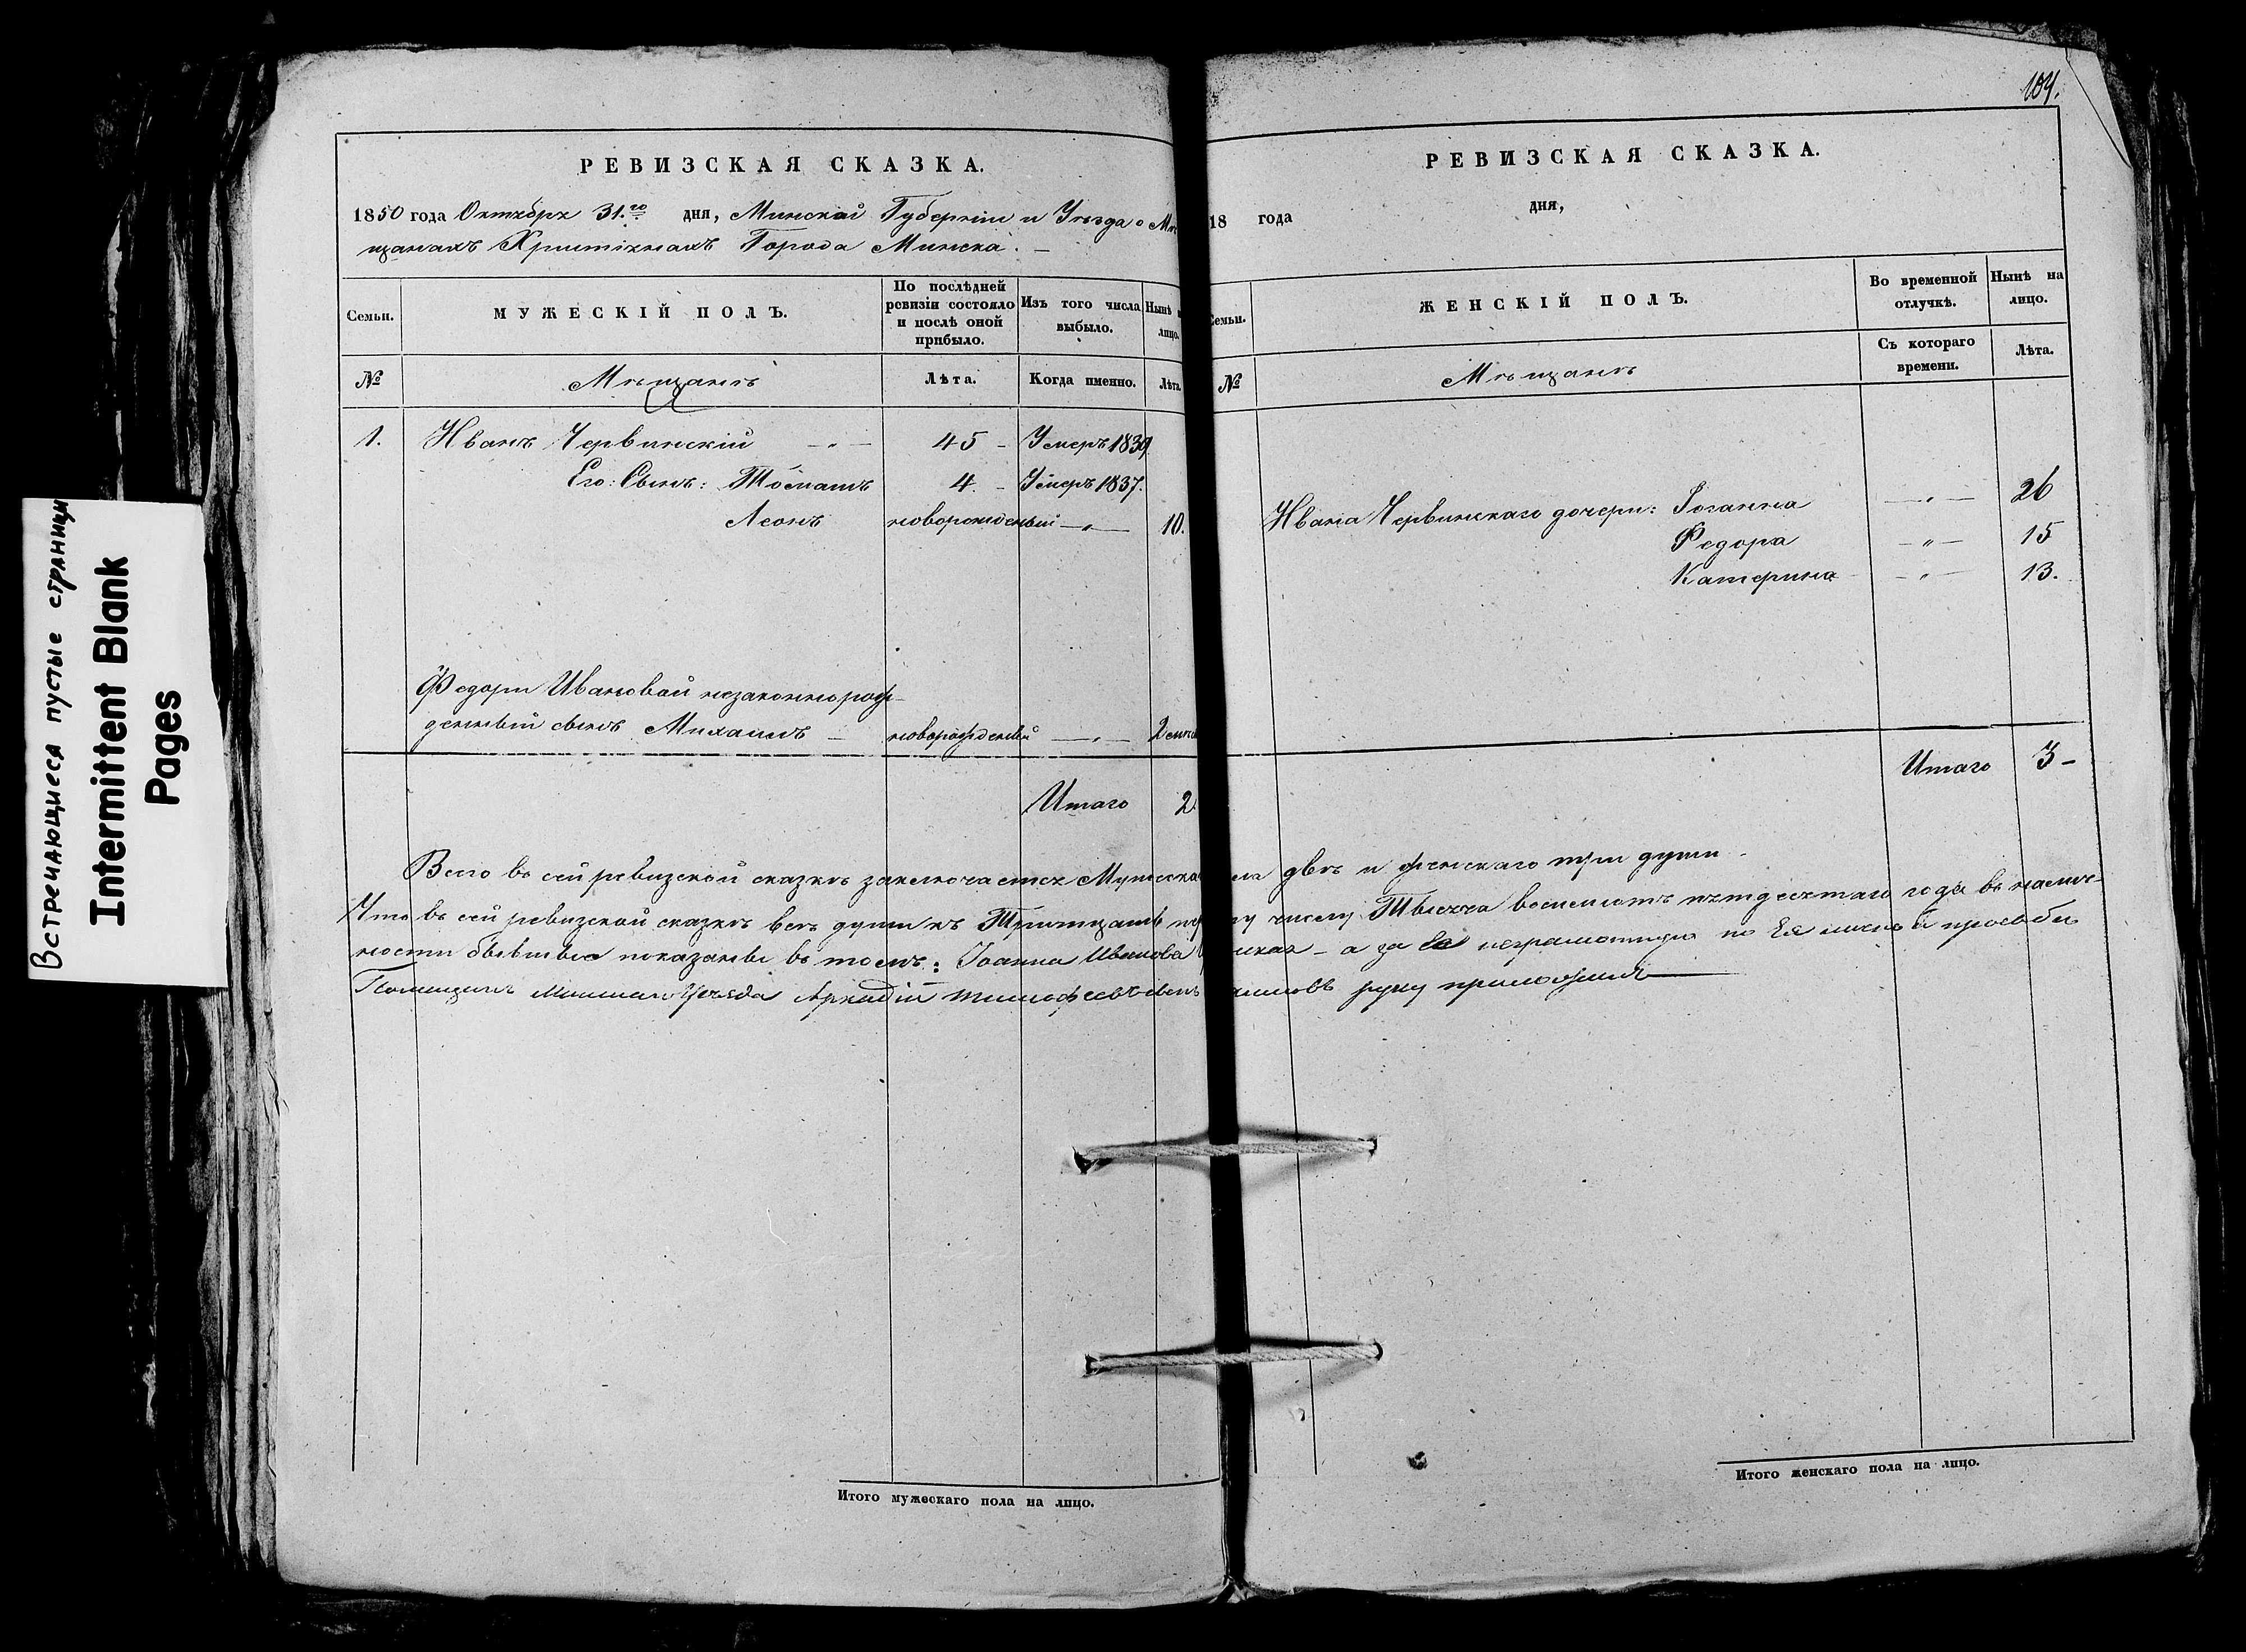 Встречающиеся пустые страницы
Intermittent Blank
Pages
РЕВИЗСКАЯ СКАЗКА.
1850 года Октября 31.го дня, Минской Губерніи и Уѣзда о Мѣ
щанахъ Христіянахъ Города Минска. —
Семьи.
МУЖЕСКІЙ ПОЛЪ.
По послѣдней
ревизіи состояло
и послѣ оной
прибыло.
Изъ того числа
выбыло.
Нынѣ
лицо.
№
Мѣщанъ
Лѣта.
Когда именно.
Лѣта.
1. Иванъ Червинскій — „ — 45 — Умеръ 1839
Его: Сынъ: Томашъ 4. — Умеръ 1837.
Леонъ новорожденый — „ — 10.
Федоры Ивановой незаконнорож-
денный сынъ Михаилъ — новорожденый — „ — 2
Итаго 2
Итого мужескаго пола на лицо.
104.
РЕВИЗСКАЯ СКАЗКА.
18 года дня,
Семьи.
ЖЕНСКІЙ ПОЛЪ.
Во временной
отлучкѣ.
Нынѣ на
лицо.
№
Мѣщанъ
Съ котораго
времени.
Лѣта.
Ивана Червинскаго дочери: Іоганна — „ — 26
Федора — „ — 15
Катерина — „ — 13.
Итаго 3 —
Всего въ сей ревизской сказкѣ заключается Мужеска двѣ и женскаго три души —
Что въ сей ревизской сказкѣ всѣ души къ числу Тысяча восемьсотъ пятдесятаго года въ налич-
ности бывшыя показаны въ томъ: Іоанна Иванова — а за неграмотную по Ея личной просьбы
Помещикъ Минскаго Уѣзда Аркадій Тимофеевъ сынъ руку приложилъ —
Итого женскаго пола на лицо.